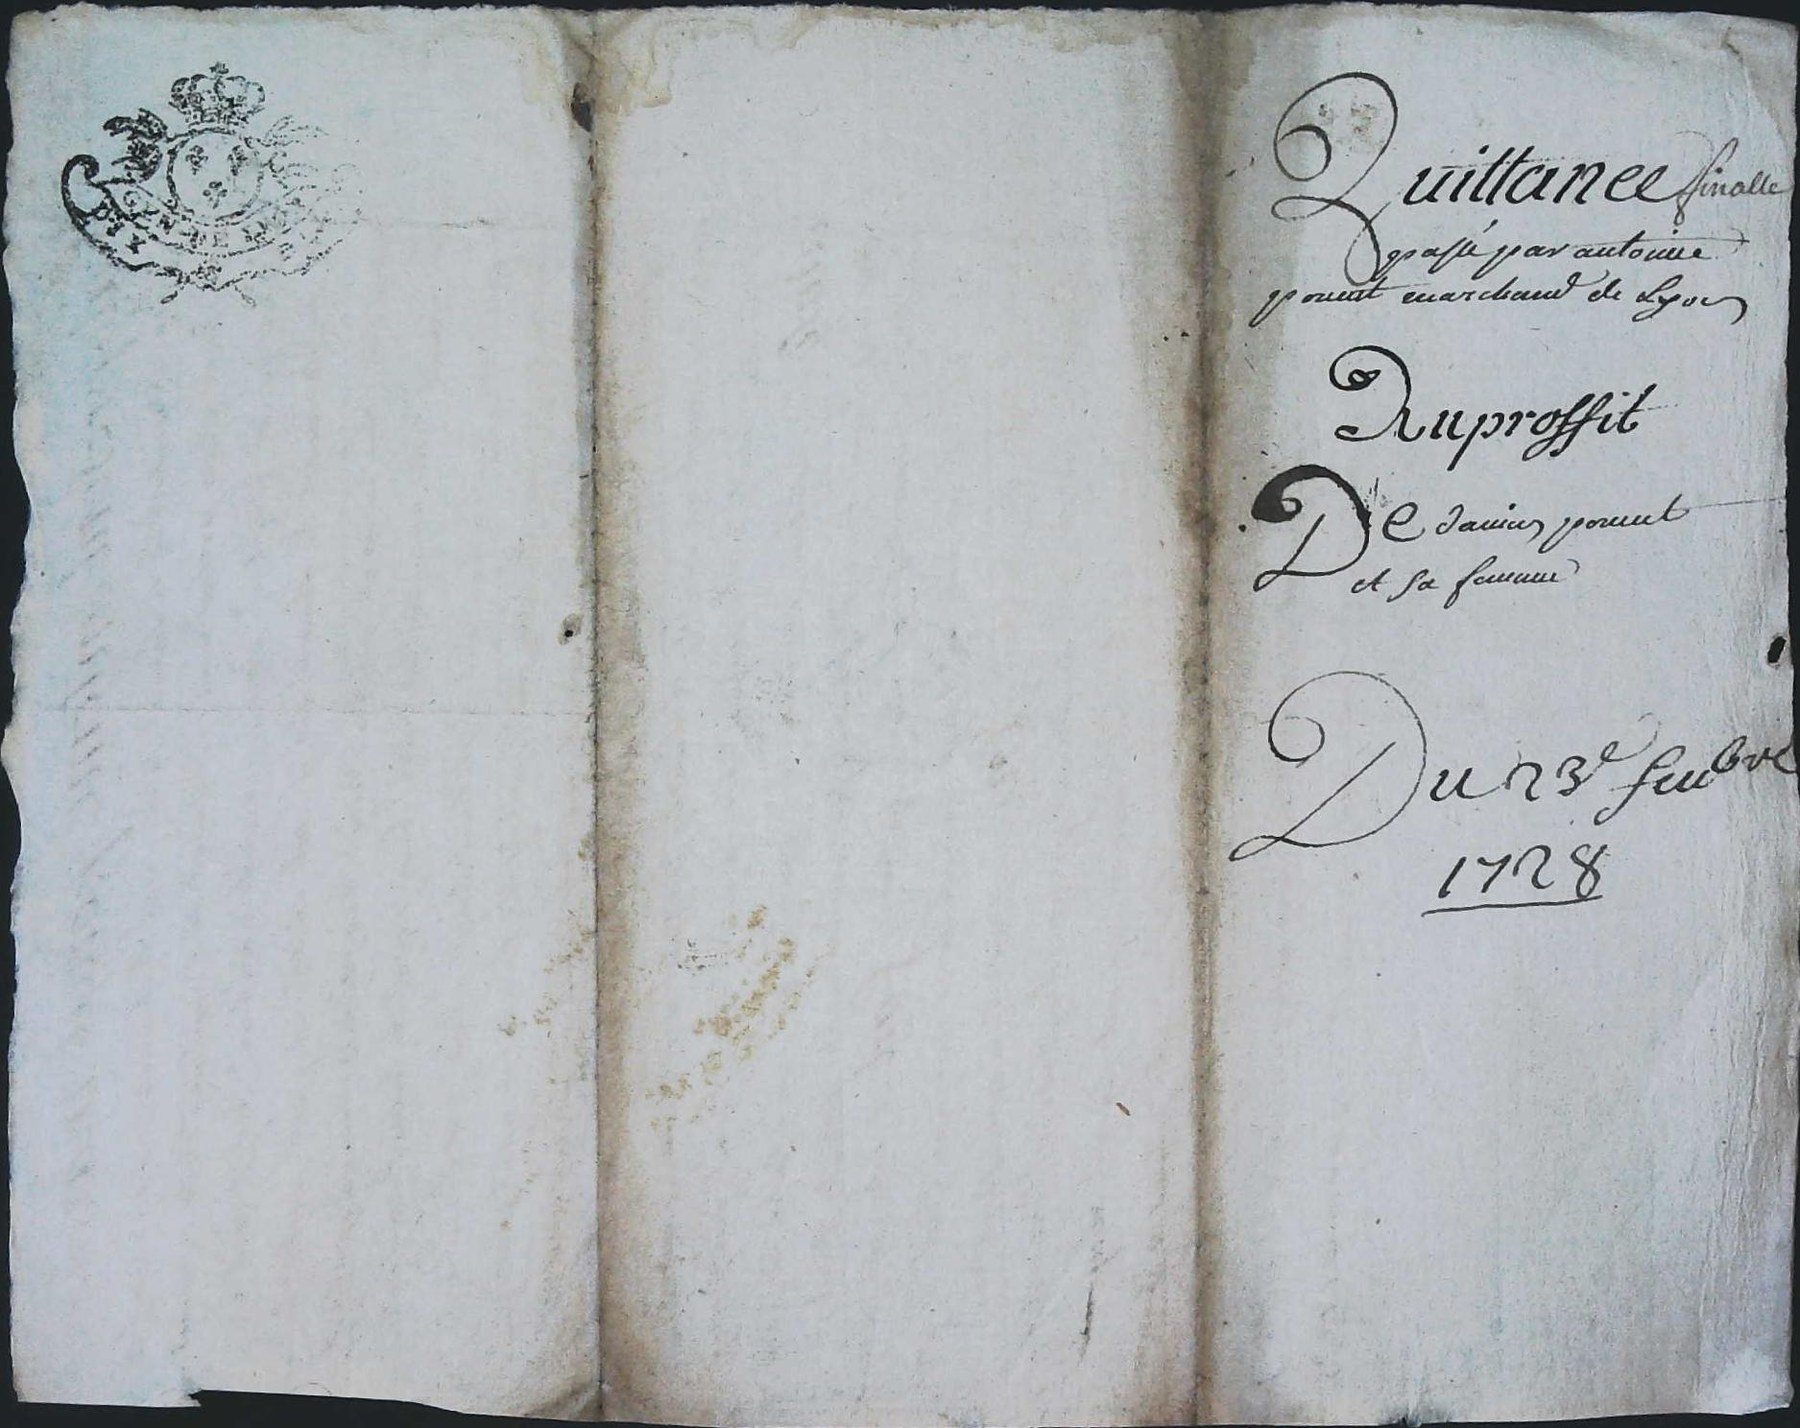 Quittance finalle
passé par antoine
poncet marchand de Lyon
Au proffit
De poncet
et sa femme
Du 23e feubre
1728